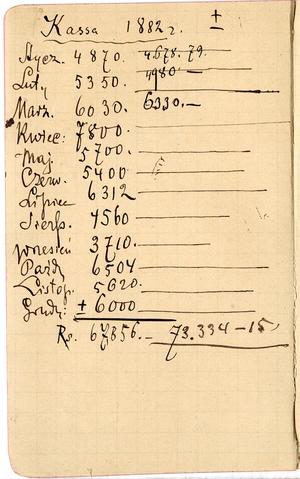 Kassa 1882 r. ±
Stycz. 4870. 4678.79.
Luty 5350. 4980 —
Marz. 6030. 6330.—
Kwiec: 7800.
Maj. 5700.
Czerw. 5400
Lipiec 6312
Sierp. 4560
wrzesień 3710.
Paźdz 6504
Listop. 5620.
Grudz: ± 6000
Rs. 67856.— 73.334—15